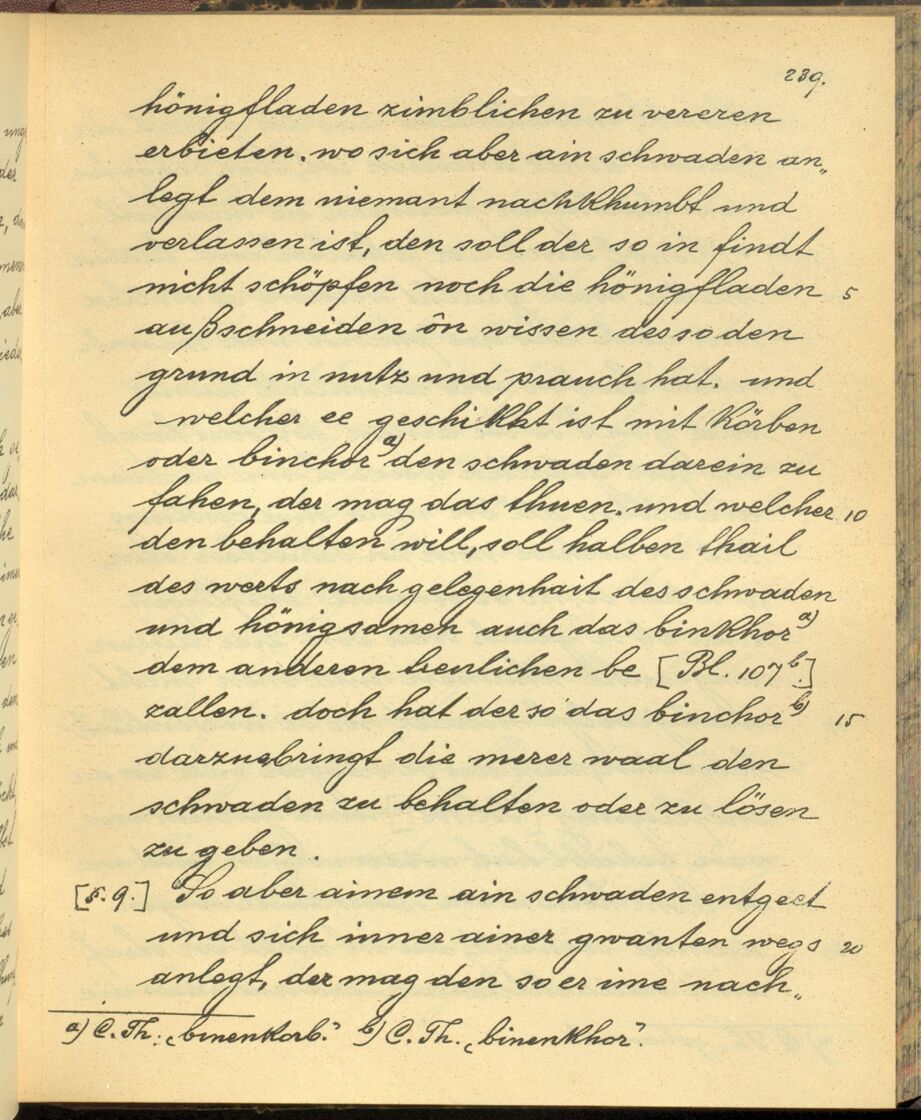 239.
hönigfladen zimblichen zu vereren
erbieten. wo sich aber ain schwaden an„
legt dem niemant nachkhumbt und
verlassen ist, den soll der so in findt
nicht schöpfen noch die hönigfladen 5
außschneiden ôn wissen des so den
grund in nutz und prauch hat. und
welcher ee geschikht ist mit körben
oder binchor a) den schwaden darein zu
fahen, der mag das thuen. und welcher 10
den behalten will, soll halben thail
des werts nach gelegenhait des schwaden
und hönigsamen auch das binkhor a)
dem anderen treulichen be [Bl. 107 b.]
zallen. doch hat der so das binchor b) 15
darzuebringt die merer waal den
schwaden zu behalten oder zu lösen
zu geben.
[§. 9.] So aber ainem ain schwaden entgeet
und sich inner ainer gwanten wegs 20
anlegt, der mag den so er ime nach„
a) C. Th.: „binenkorb.“ b) C. Th. „binenkhor“.